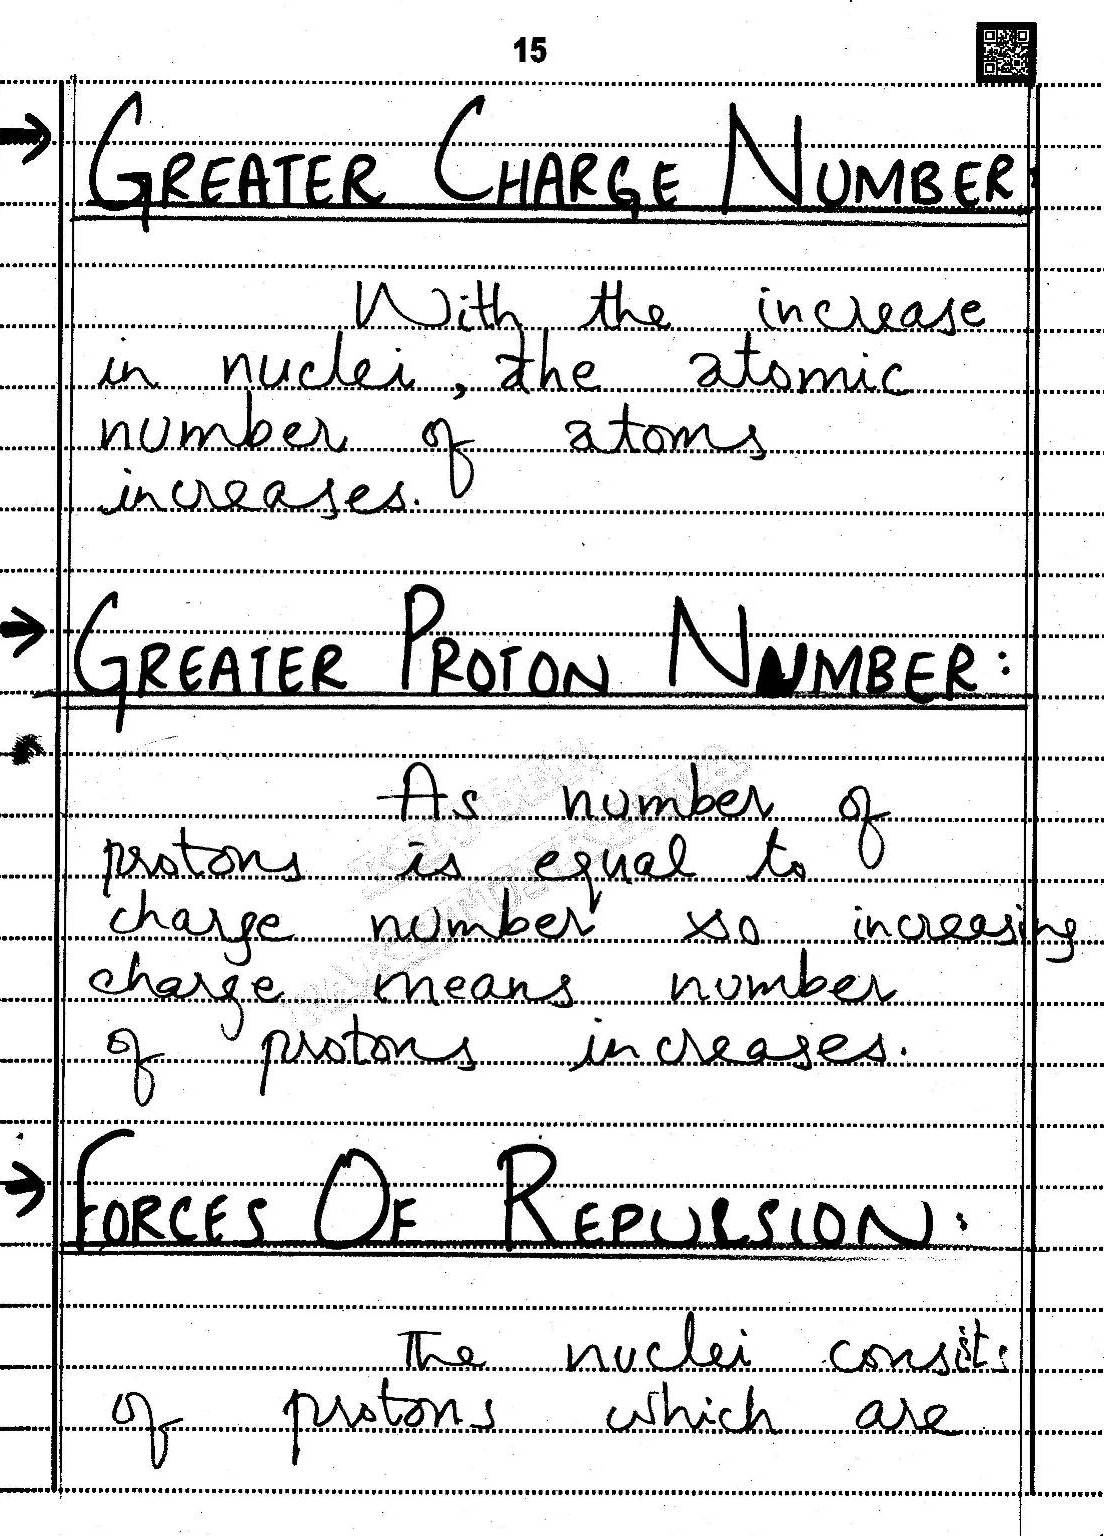 15
→ GREATER CHARGE NUMBER:
With the increase
in nuclei, the atomic
number of atoms
increases.
→ GREATER PROTON NUMBER:
As number of
protons is equal to
charge number so increasing
charge means number
of protons increases.
→ FORCES OF REPULSION:
The nuclei consists
of protons which are